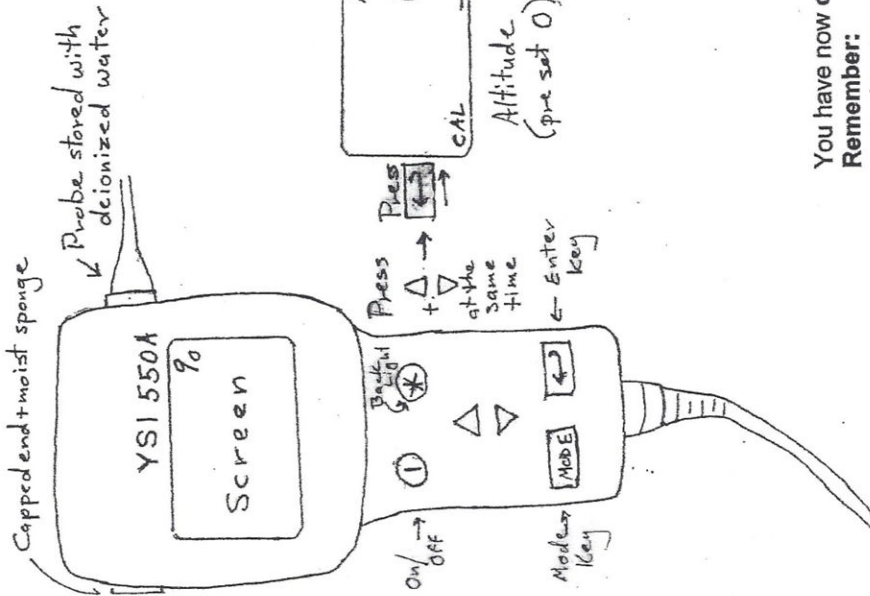 Capped end + moist sponge
Probe stored with
deionized water
YSI 550A
%
Screen
On/
off
Back
light
Mode
Key
MODE
Enter
Key
Press
+
at the
same
time
Press
CAL
Altitude
(pre set 0)
You have now
Remember: